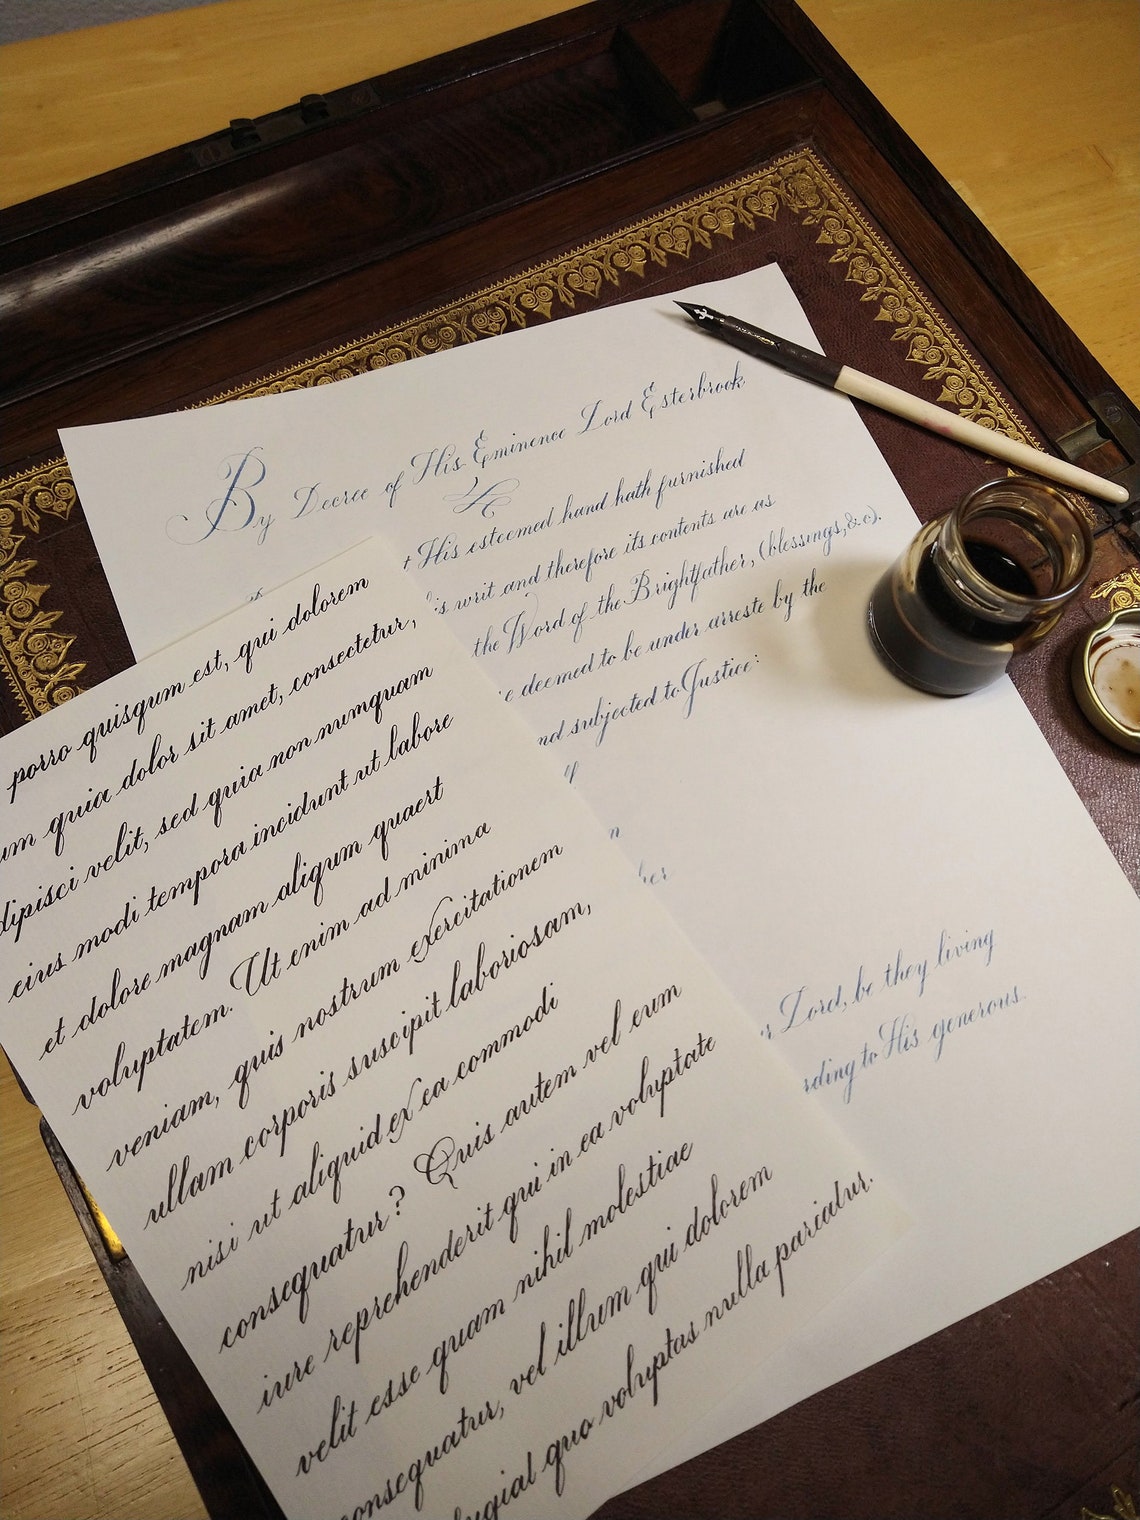 By Decree of His Eminence Lord Esterbrook
His esteemed hand hath furnished
writ and therefore its contents are as
the Word of the Brightfather, (blessings, & c).
deemed to be under arreste by the
subjected to Justice:
Lord, be they living
to His generous
porro quisqum est, qui dolorem
quia dolor sit amet, consectetur,
dipisci velit, sed quia non numquam
eius modi tempora incidunt ut labore
et dolore magnam aliqum quaert
voluptatem. Ut enim ad minima
veniam, quis nostrum exercitationem
ullam corporis suscipit laboriosam,
nisi ut aliquid ex ea commodi
consequatur? Quis autem vel eum
iure reprehenderit qui in ea voluptate
velit esse quam nihil molestiae
consequatur, vel illum qui dolorem
quo voluptas nulla pariatur.